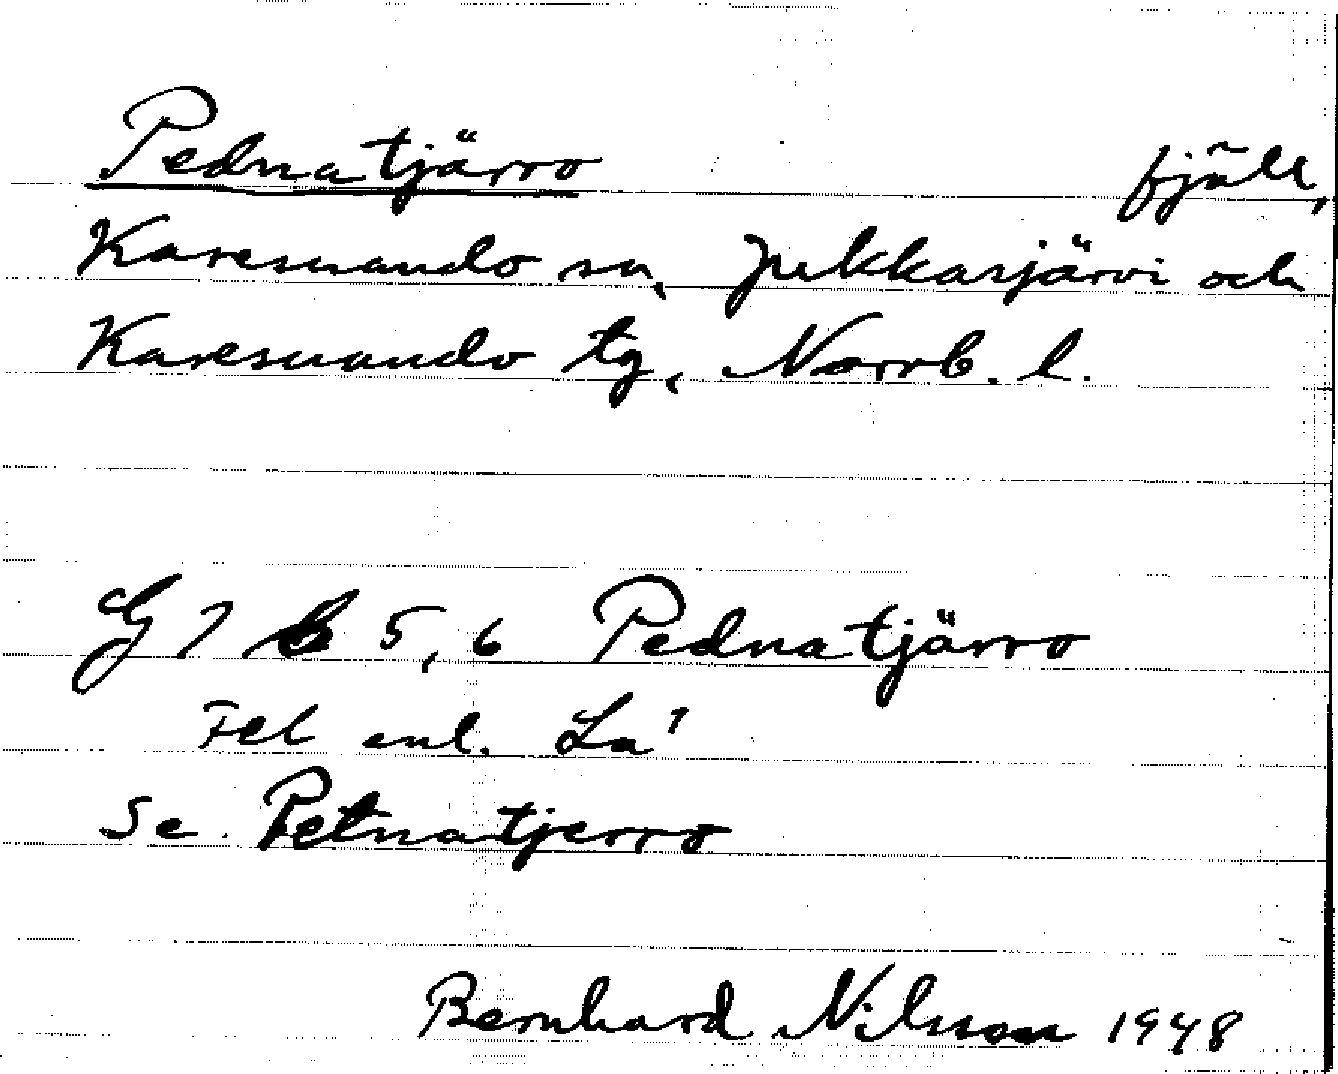 Pednatjärro fjäll,
Karesuando sn, Jukkasjärvi och
Karesuando tg, Norrb. l.
G 7 5, 6 Pednatjärro
Fel enl. La'
Se Petnatjerro
Bernhard Nilsson 1948